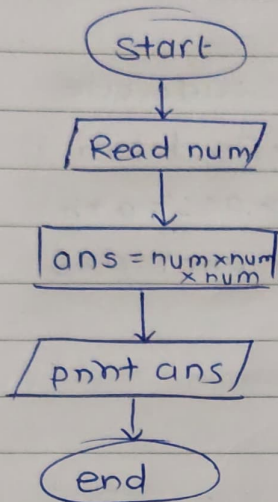 start
Read num
ans = num×num
× num
print ans
end